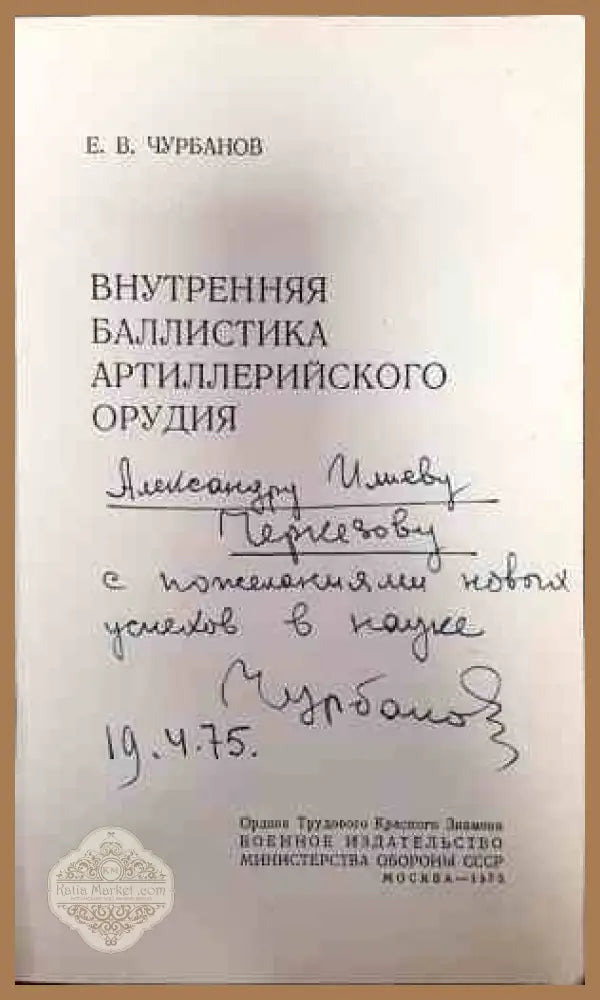 Е. В. ЧУРБАНОВ
ВНУТРЕННЯЯ
БАЛЛИСТИКА
АРТИЛЛЕРИЙСКОГО
ОРУДИЯ
Александру Илиеву
Черкезову
с пожеланиями новых
успехов в науке
Чурбанов
19.4.75.
Ордена Трудового Красного Знамени
ВОЕННОЕ ИЗДАТЕЛЬСТВО
МИНИСТЕРСТВА ОБОРОНЫ СССР
МОСКВА—1975
KM
Katia Market.com